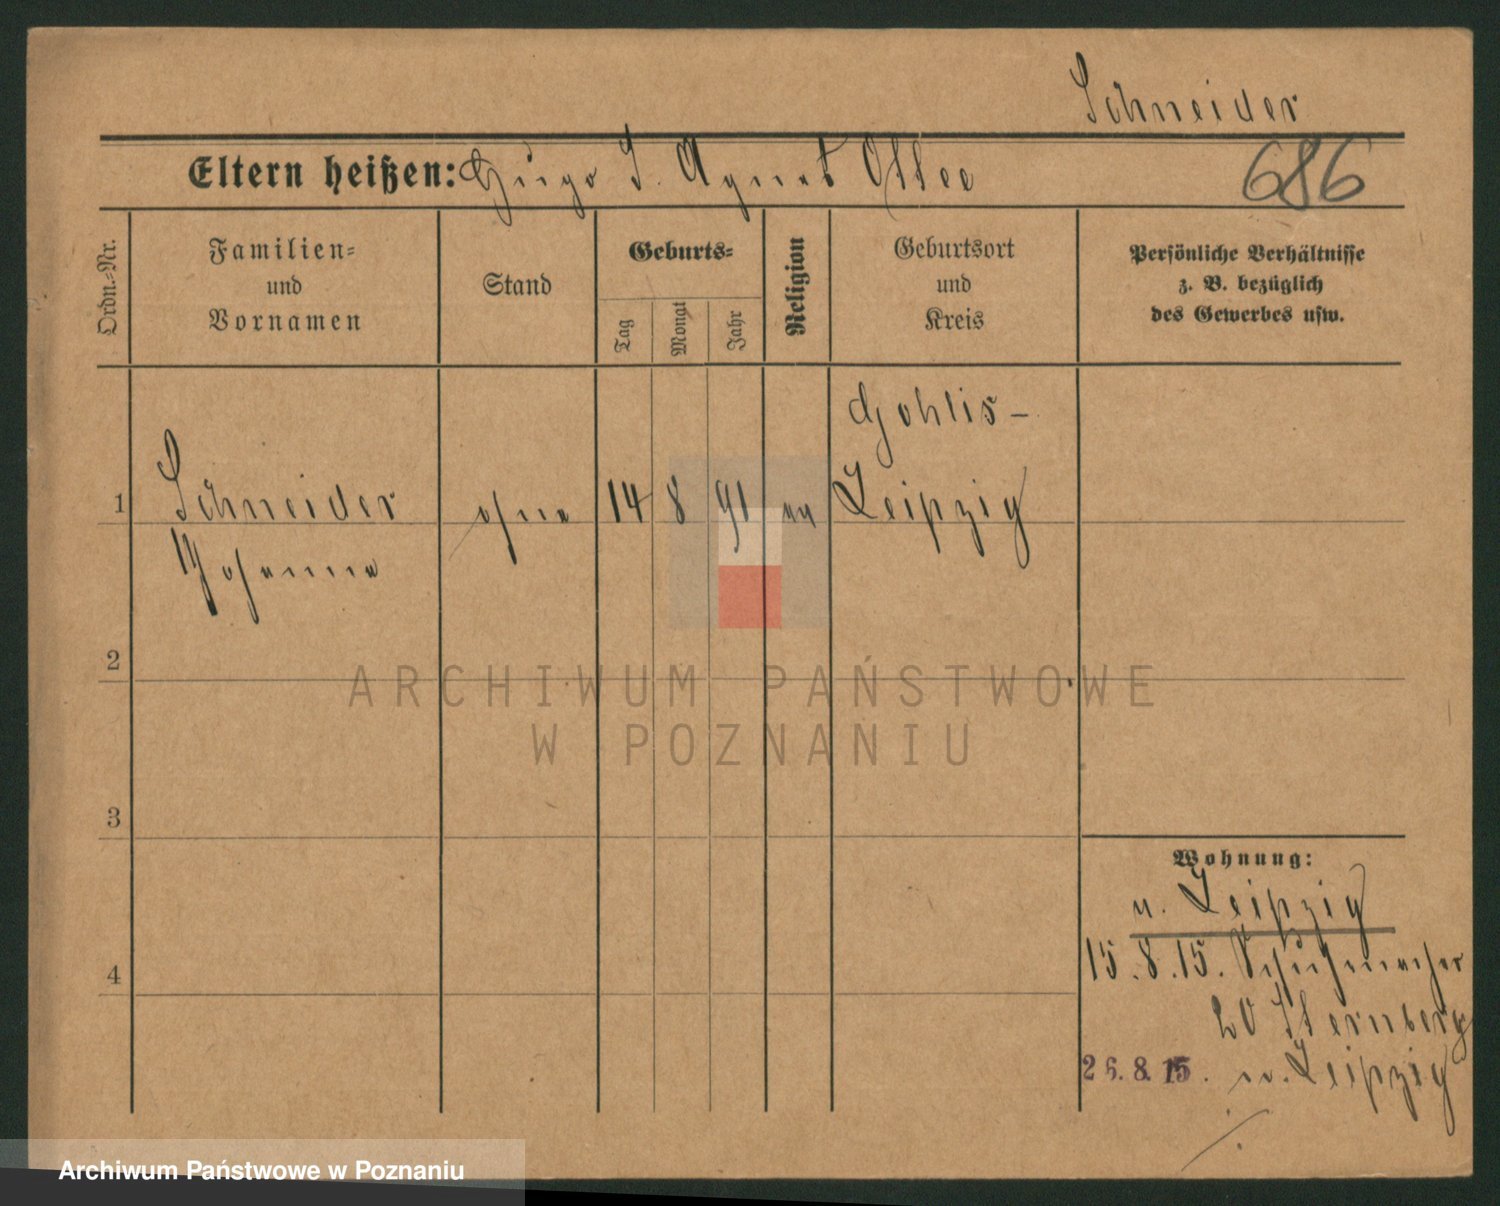 Schneider
Eltern heißen: Hugo J. Agnes Ottee
686
Ordn.-Nr.
Familien-
und
Vornamen
Stand
Geburts-
Tag
Monat
Jahr
Religion
Geburtsort
und
Kreis
Persönliche Verhältnisse
z. B. bezüglich
des Gewerbes usw.
Gohlis-
1 Schneider ohne 14 8 91 ev Leipzig
Johanna
2
ARCHIWUM PAŃSTWOWE
W POZNANIU
3
Wohnung:
v. Leipzig
4
15.8.15. Schuhmacher
20 Sternberg
26.8.15. n. Leipzig
Archiwum Państwowe w Poznaniu